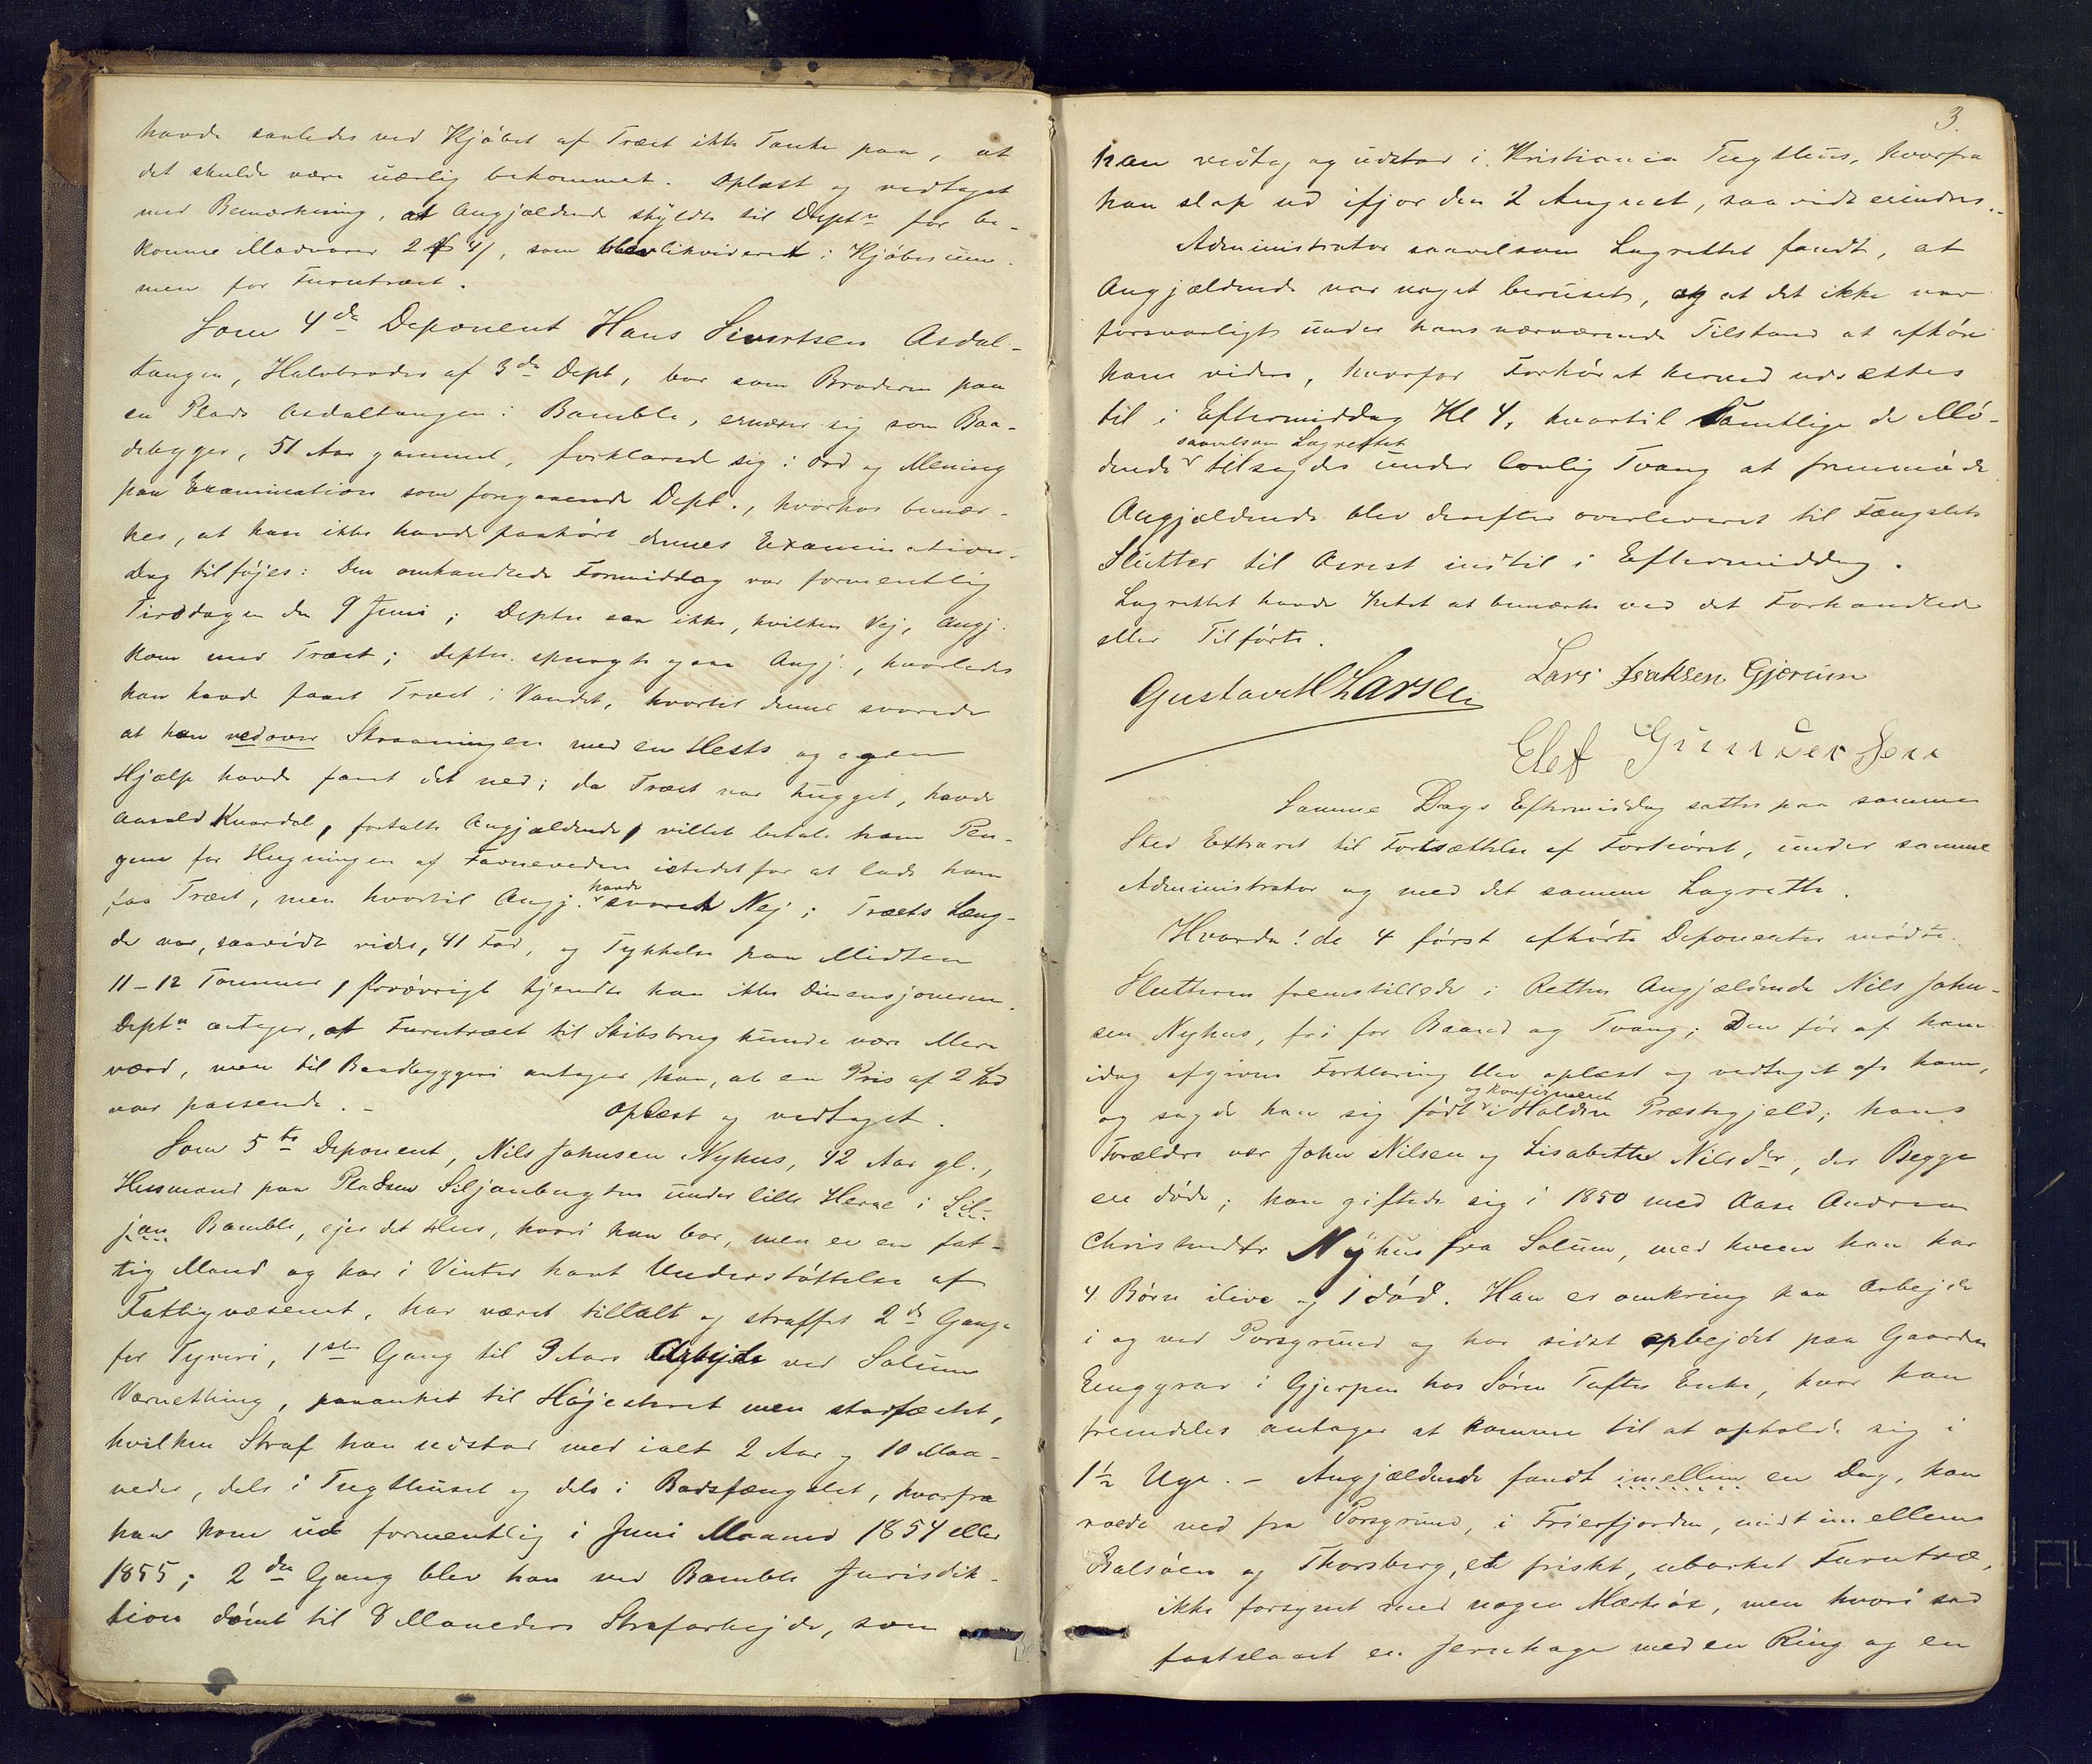 havde saaledes ved Kjøbet af Træet ikke Tanke paa, at
det skulde være uærlig bekommet. Oplæst og vedtaget
med Bemærkning, at Angjældende skyldte til Deptn for be-
komne Madvarer 2 , som blev likvideret i Kjøbesum-
men for Furutræet.
Som 4de Deponent Hans Sivertsen Asdal-
tangen, Halvbroder af 3die Dept, bor som Broderen paa
en Plads Asdaltangen i Bamble, ernærer sig som Baa-
debygger, 51 Aar gammel, forklarede sig i Ord og Mening
paa Examination som foregaaende Dept., hvorhos bemær-
kes, at han ikke havde paahørt dennes Examination.
Dog tilføjes: Den omhandlede Formiddag var formentlig
Tirsdagen den 9 Juni; Deptn saa ikke, hvilken Vej, Angj.
kom med Træet; Deptn. spurgte ogsaa Angj., hvorledes
han havde faaet Træet i Vandet, hvortil denne svarede
at han nedover Skraaningen med en Hests og egen
Hjælp havde faaet det ned; da Træet var hugget, havde
Aarald Kvardal, fortalte Angjældende, villet betale ham Pen-
gene for Hugningen af Favneveden istedetfor at lade ham
faa Træet, men hvortil Angj. havde svaret Nej; Træets Læng-
de var, saavidt vides, 41 Fod, og Tykkelse paa Midten
11-12 Tommer, forøvrigt kjendte han ikke Dimensjonerne.
Deptn antager, at Furutræet til Skibsbrug kunde være Mere
værd, men til Baadbyggeri antager han, at en Pris af 2 Spd
var passende. - Oplæst og vedtaget.
Som 5te Deponent, Nils Johnsen Nyhus, 42 Aar gl.,
Husmand paa Pladsen Siljanbugten under lille Herre i Sil-
jan Bamble, ejer det Hus, hvori han bor, men er en fat-
tig Mand og har i Vinter havt Understøttelse af
Fattigvæsenet, har været tiltalt og straffet 2de Gange
for Tyveri, 1ste Gang til 3 Aars Arbejde ved Solum
Værnething, paaanket til Højesteret men stadfæstet,
hvilken Straf han udstod med ialt 2 Aar og 10 Maa-
neder, dels i Tugthuset og dels i Bodsfængslet, hvorfra
han kom ud formentlig i Juni Maaned 1854 eller
1855; 2den Gang blev han ved Bamble Jurisdik-
tion dømt til 8 Maaneders Strafarbejde, som
3.
han vedtog og udstod i Kristiania Tugthus, hvorfra
han slap ud ifjor den 2 August, saavidt erindres.
Administrator saavelsom Lagrettet fandt, at
Angjældende var noget beruset, og at det ikke var
forsvarligt under hans nærværende Tilstand at afhøre
ham videre, hvorfor Forhøret herved udsættes
til i Eftermiddag Kl 4, hvortil samtlige de Mø-
saavelsom Lagrettet
dende tilsagdes under lovlig Tvang at fremmøde
Angjældende blev derefter overleveret til Fængslets
Slutter til Arrest indtil i Eftermiddag.
Lagrettet havde Intet at bemærke ved det Forhandlede
eller Tilførte.
Gustav M Larsen Lars Isaksen Gjerum
Elef Gundersen
Samme Dags Eftermiddag sattes paa samme
Sted Extraret til Fortsættelse af Forhøret, under samme
Administrator og med det samme Lagrette.
Hvorda! de 4 først afhørte Deponenter mødte.
Slutteren fremstillede i Retten Angjældende Nils John-
sen Nyhus, fri for Baand og Tvang; Den før af ham
idag afgivne Forklaring blev oplæst og vedtaget af ham,
og konfirmeret
og sagde han sig født i Holden Præstegjeld; hans
Forældre var John Nilsen og Lisabethe Nilsdr, der Begge
ere døde; han giftede sig i 1850 med Aase Andrea
Christensdr Nyhus fra Solum, med hvem han har
4 Børn ilive og 1 død. Han er omkring paa Arbejde
i og ved Porsgrund og har sidst arbejdet paa Gaarden
Enggrav i Gjerpen hos Søren Tufte Enke, hvor han
fremdeles antager at komme til at opholde sig i
1½ Uge. - Angjældende fandt imellem en Dag, han
roede ned fra Porsgrund, i Frierfjorden, midt imellem
Balsøen og Thorsberg, et friskt, ubarket Furutræ,
ikke forsynet med nogen Mærkiøx, men hvori sad
fastslaaet en Jernhage med en Ring og en